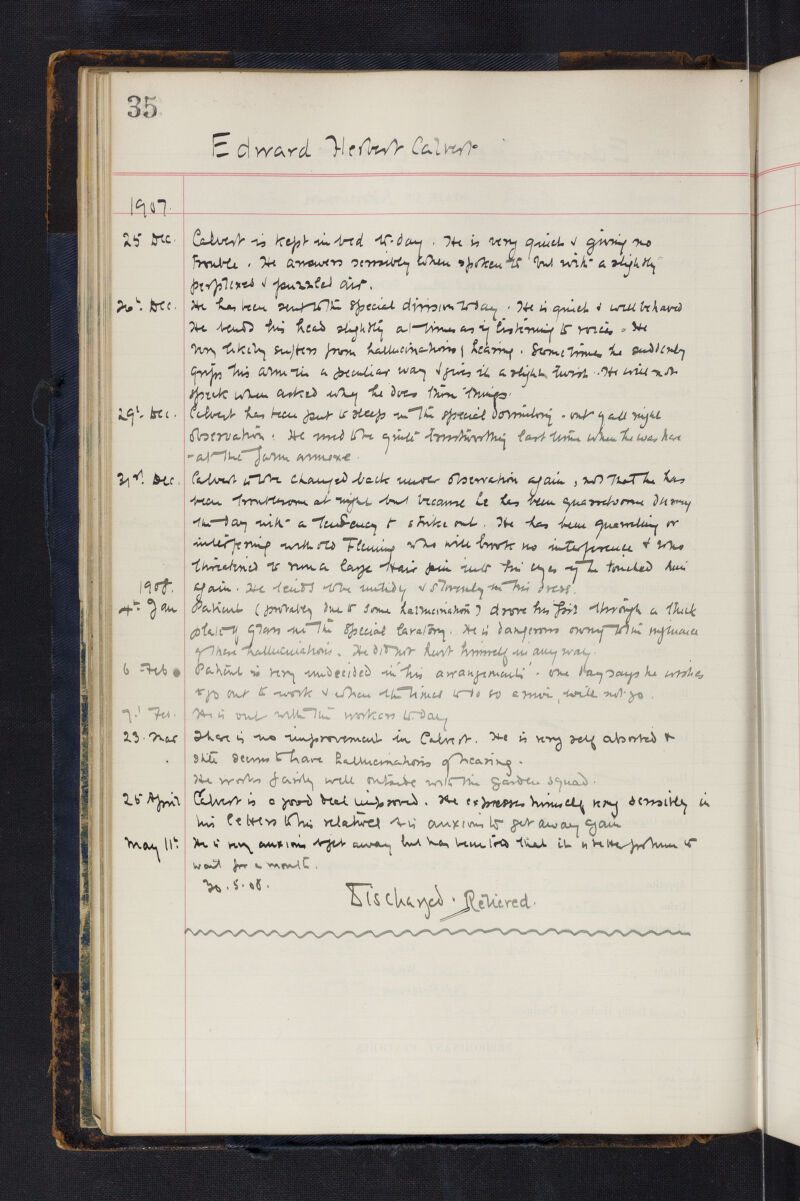 35
Edward Herbert Calvert
1907.
25 Dec. Calvert is kept in bed to-day. He is very quiet & giving no
trouble. He answers sensibly when spoken to but with a slightly
perplexed & puzzled air.
26th. Dec. He has been sent to the Special division today. He is quiet & well behaved
He bends his head slightly at times as if listening to voices. He
very likely suffers from hallucinations of hearing. Sometimes he suddenly
grips his arm in a peculiar way & gives it a slight twist. He will not
speak when asked why he does these things.
29th. Dec. Calvert has been put to sleep in the special dormitory - out of all night
observation. He used to be quite trustworthy last time when he was here
- at the farm annexe.
31st. Dec. Calvert to be changed back under observation again, not that he has
been troublesome at night but because he has been quarrelsome during
the day with a tendency to strike out. He has been quarreling or
interfering with old Fleming who will brook no interference & who
threatened to run a large Hair pin into his eyes if he touched him
again. He tends to be untidy & slovenly in his dress.
1908.
4th Jan Patient (probably due to some hallucination?) drove his fist through a thick
plate of glass in the Special lavatory. He is dangerous owing to the influence
of these hallucinations. He did not hurt himself in any way.
6 Feb Patient is very undecided in his arrangements - one day says he wishes
to go out to work & when the time to do so arrives, will not go.
9th Feb. He is out with the workers to-day
23. Mar There is no improvement in Calvert. He is very self absorbed &
still seems to have hallucinations of hearing.
He works fairly well outside with the garden squad.
25 April Calvert is a good deal improved. He expresses himself very sensibly in
his letters to his relatives & is anxious to get away again
May 11th. He is very anxious to get away but has been told that it is better for him to
wait for a month.
30.5.08. Discharged. Relieved.